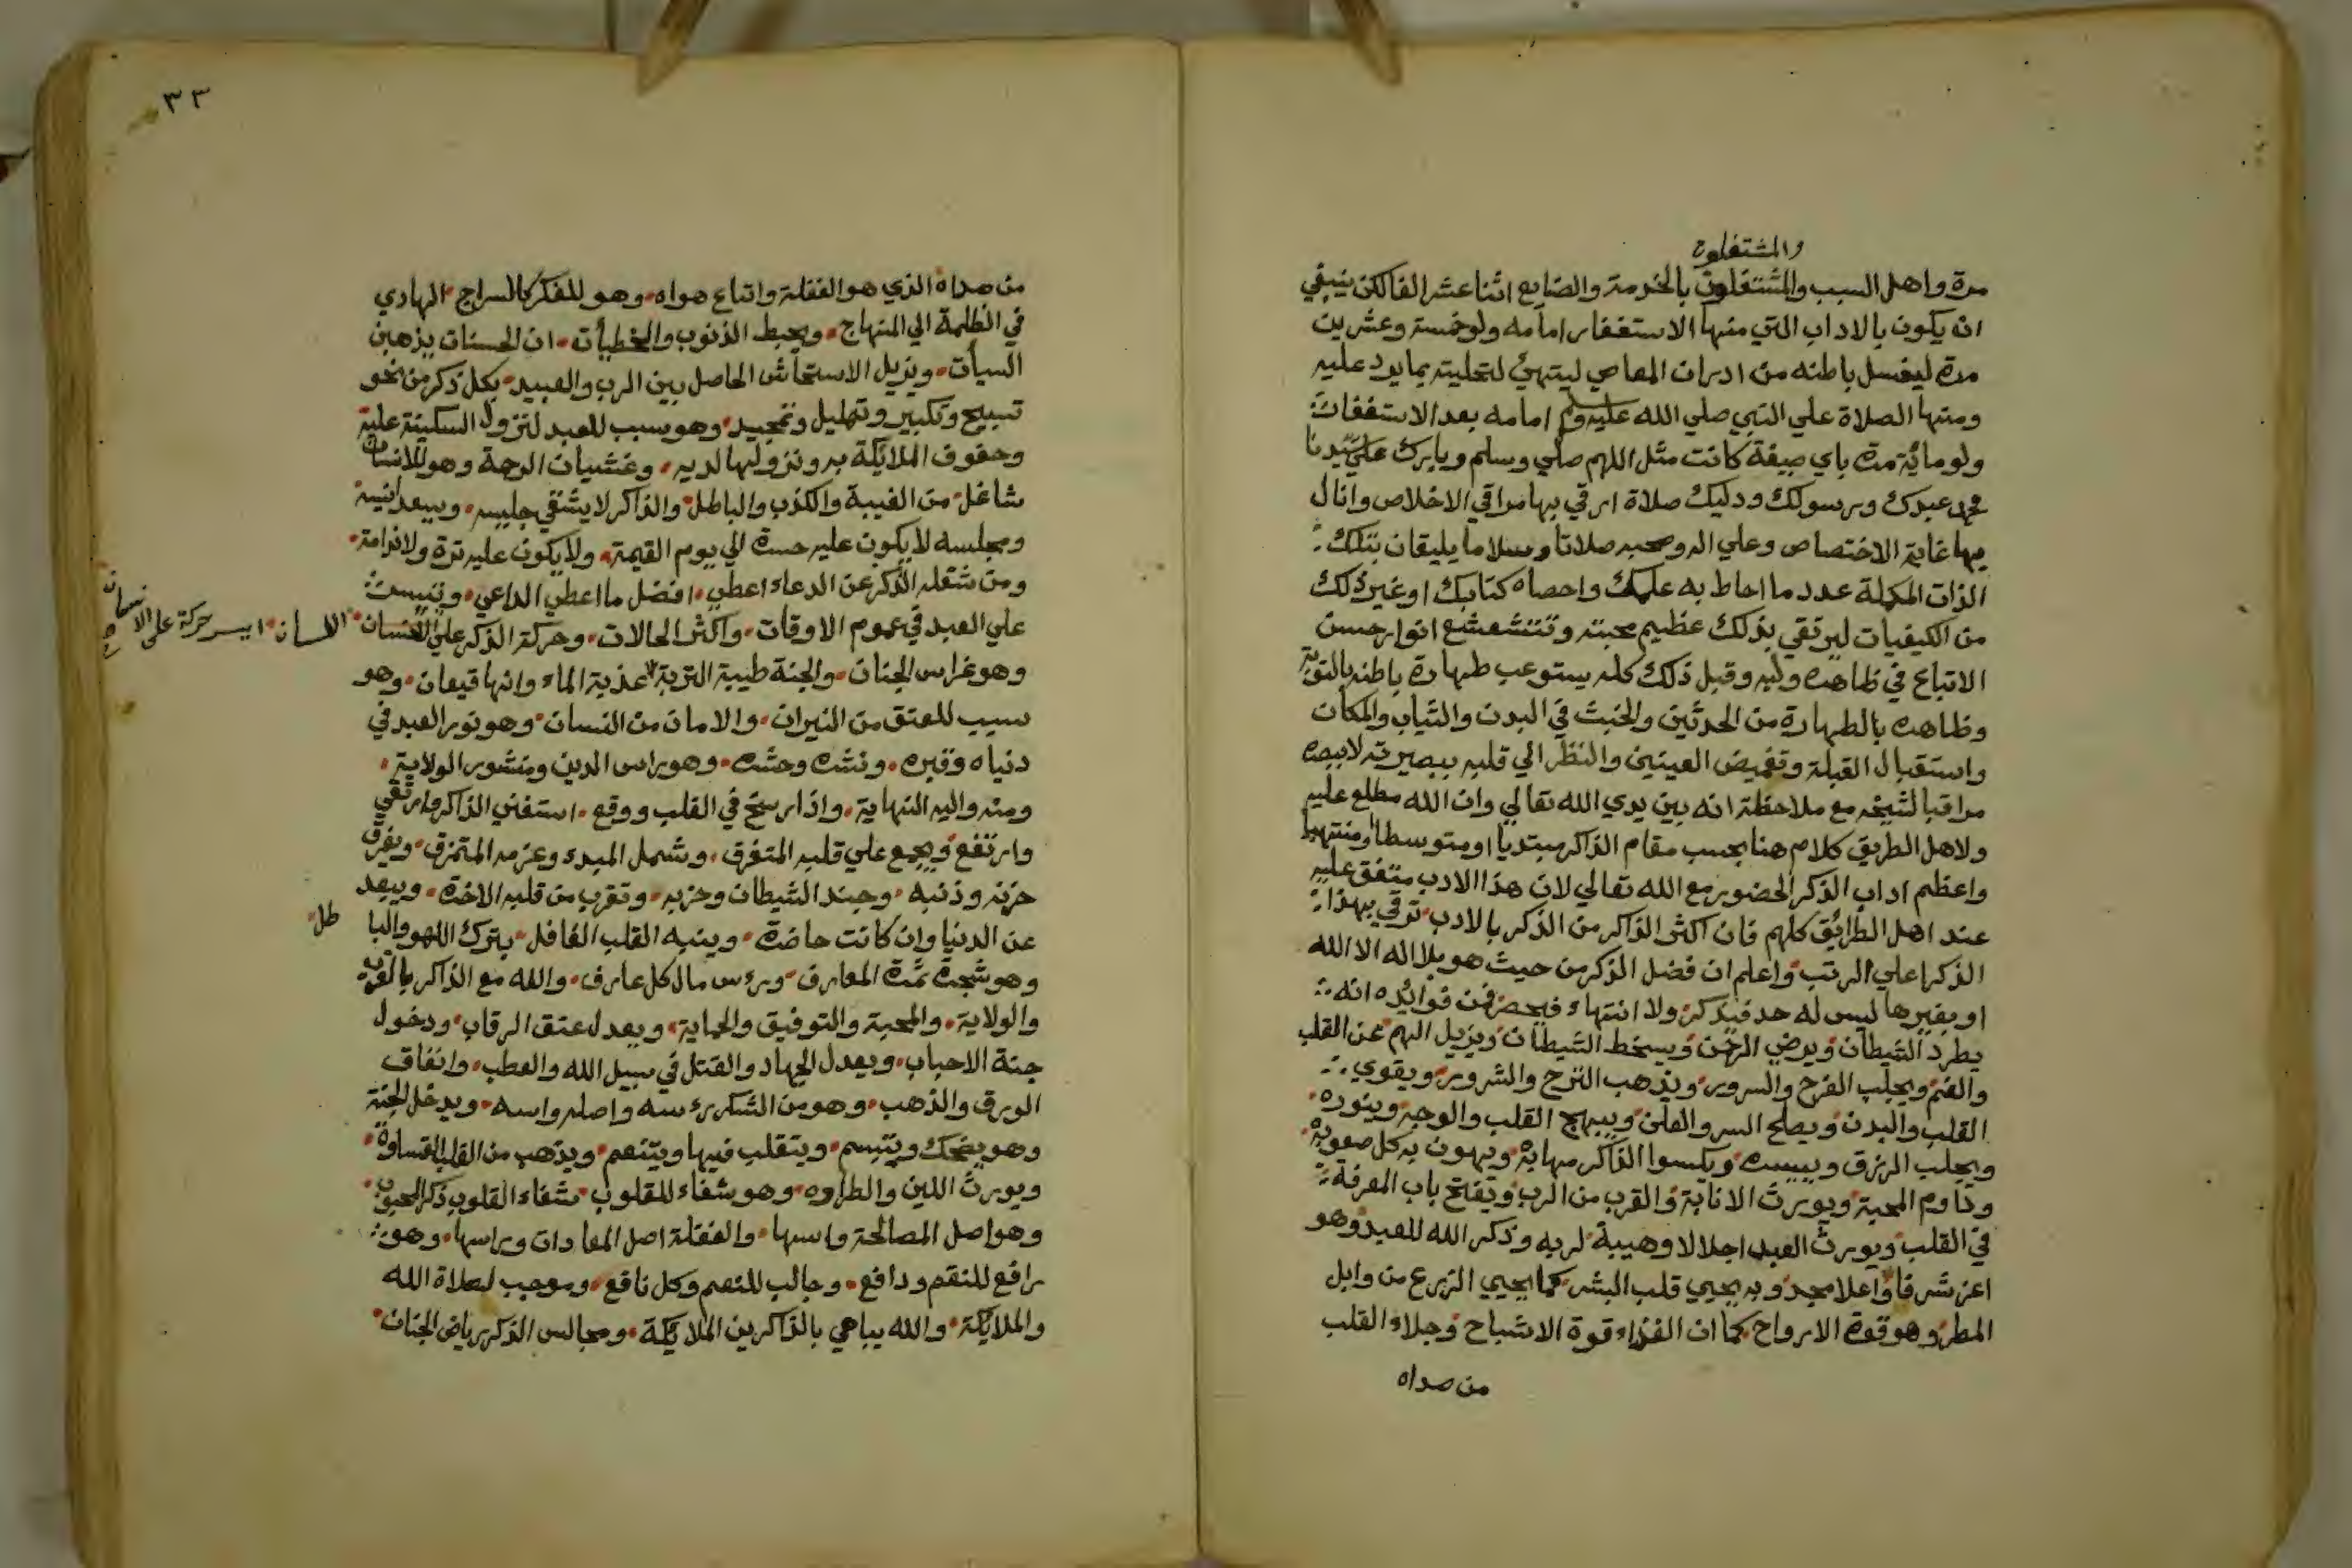 والمشتغلون
مرة واهل السبب والمشتغلون بالخدمة والصنايع اثنا عشر الفا لكن ينبغي
ان يكون بالاداب التي منها الاستغفار امامه ولو خمسة وعشرين
مرة ليغسل باطنه من ادران المعاصي ليتهئ لتحليته بما يرد عليه
ومنها الصلاة علي النبي صلي الله عليه وسلم امامه بعد الاستغفارات
ولو مائة مرة باي صيغة كانت مثل اللهم صلي وسلم وبارك علي سيدنا
محمد عبدك ورسولك ودليلك صلاة ارقي بها مراقي الاخلاص وانال
بها غاية الاختصاص وعلي اله وصحبه صلاتا وسلاما يليقان بتلك
الذات المكملة عدد ما احاط به علمك واحصاه كتابك او غير ذلك
من الكيفيات ليرتقي بذلك عظيم محبته وتتشعشع انوار حسن
الاتباع في ظاهره ولبه وقبل ذلك كله يستوعب طهارة باطنه بالتوبة
وظاهره بالطهارة من الحدثين والخبث في البدن والثياب والمكان
واستقبال القبلة وتغميض العينين والنظر الي قلبه ببصيرته لا ببصره
مراقبا لشيخه مع ملاحظة انه بين يدي الله تعالي وان الله مطلع عليه
ولاهل الطريق كلام هنا بحسب مقام الذاكر مبتديا او متوسطا او منتهيا
واعظم اداب الذكر الحضور مع الله تعالي لان هذا الادب متفق عليه
عند اهل الطرائق كلهم فان اكثر الذاكر من الذكر بالادب ترقي بهذا
الذكر اعلي الرتب واعلم ان فضل الذكر من حيث هو بلا اله الا الله
او بغيرها ليس له حد فيذكر ولا انتهاء فيحصر فمن فوائده انه
يطرد الشيطان ويرضي الرحمن ويسخط الشيطان ويزيل الهم عن القلب
والغم ويجلب الفرح والسرور ويذهب الترح والشرور ويقوي
القلب والبدن ويصلح السر والعلن ويبهج القلب والوجه وينوره
ويجلب الرزق وييسره ويكسوا الذاكر مهابة ويهون به كل صعوبة
وداوم المحبة ويورث الانابة والقرب من الرب ويفتح باب المعرفة
في القلب ويورث العبد اجلالا وهيبة لربه وذكر الله للعبد وهو
اعز شرفا واعلا مجد وبه يحيي قلب البشر كما يحيي الزرع من وابل
المطر وهو قوة الارواح كما ان الغذاء قوة الاشباح وجلاء القلب
من صداه
٣٣
من صداه الذي هو الغفلة واتباع هواه وهو للفكر كالسراج الهادي
في الظلمة الي المنهاج ويحبط الذنوب والخطيأت ان الحسنات يذهبن
السيأت ويزيل الاستحاش الحاصل بين الرب والعبيد بكل ذكر من نحو
تسبيح وتكبير وتهليل وتمجيد وهو سبب للعبد لنزول السكينة عليه
وحفوف الملايكة به ونزولها لديه وغشيان الرحمة وهو للانسان
شاغل من الغيبة والكذب والباطل والذاكر لا يشقي جليسه ويسعد انيسه
ومجلسه لا يكون عليه حسرة الي يوم القيمة ولا يكون عليه ترة ولا ندامة
ومن شغله الذكر عن الدعاء اعطي افضل ما اعطي الداعي وتيسرت
علي العبد في عموم الاوقات واكثر الحالات وحركة الذكر علي اللسان
اللسان ايسر حركة على الانسان صح
وهو غراس الجنان والجنة طيبة التربة عذبة الماء وانها قيعان وهو
سبب للعتق من النيران والامان من النسان وهو نور العبد في
دنياه وقبره ونشره وحشره وهو راس الدين ومنشور الولاية
ومنه واليه النهاية واذا رسخ في القلب ووقع استغني الذاكر وارتقي
وارتفع ويجمع علي قلبه المتفرق وشمل المبدد وعزمه المتمزق ويفرق
حزنه وذنبه وجند الشيطان وحزبه وتقرب من قلبه الاخرة ويبعد
عن الدنيا وان كانت حاضرة وينبه القلب الغافل بترك اللهو والبا طل
وهو شجرة ثمرة المعارف ورؤس مال كل عارف والله مع الذاكر بالقرب
والولاية والمحبة والتوفيق والحماية ويعدل عتق الرقاب ودخول
جنة الاحباب ويعدل الجهاد والقتل في سبيل الله والعطب وانفاق
الورق والذهب وهو من الشكر رؤسه واصله واسه ويدخل الجنة
وهو يضحك ويتبسم ويتقلب فيها ويتنعم ويذهب من القلب القساوة
ويورث اللين والطراوه وهو شفاء للقلوب شفاء القلوب ذكر المحبوب
وهو اصل المصالحة واسها والغفلة اصل المعادات وراسها وهو
رافع للنقم ودافع وجالب للنعم وكل نافع وموجب لصلاة الله
والملايكة والله يباهي بالذاكرين الملايكة ومجالس الذكر رياض الجنان